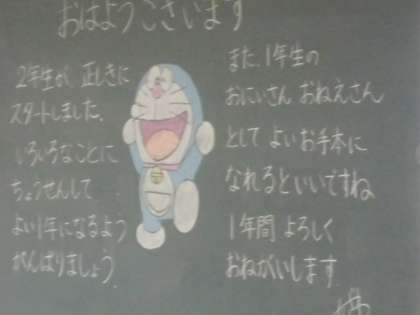 おはようございます
2年生が 正しきに
スタートしました.
いろいろなことに
ちょうせんして
よい1年になるよう
がんばりましょう.
また, 1年生の
おにいさん おねえさん
として よいお手本に
なれるといいですね
1年間 よろしく
おねがいします